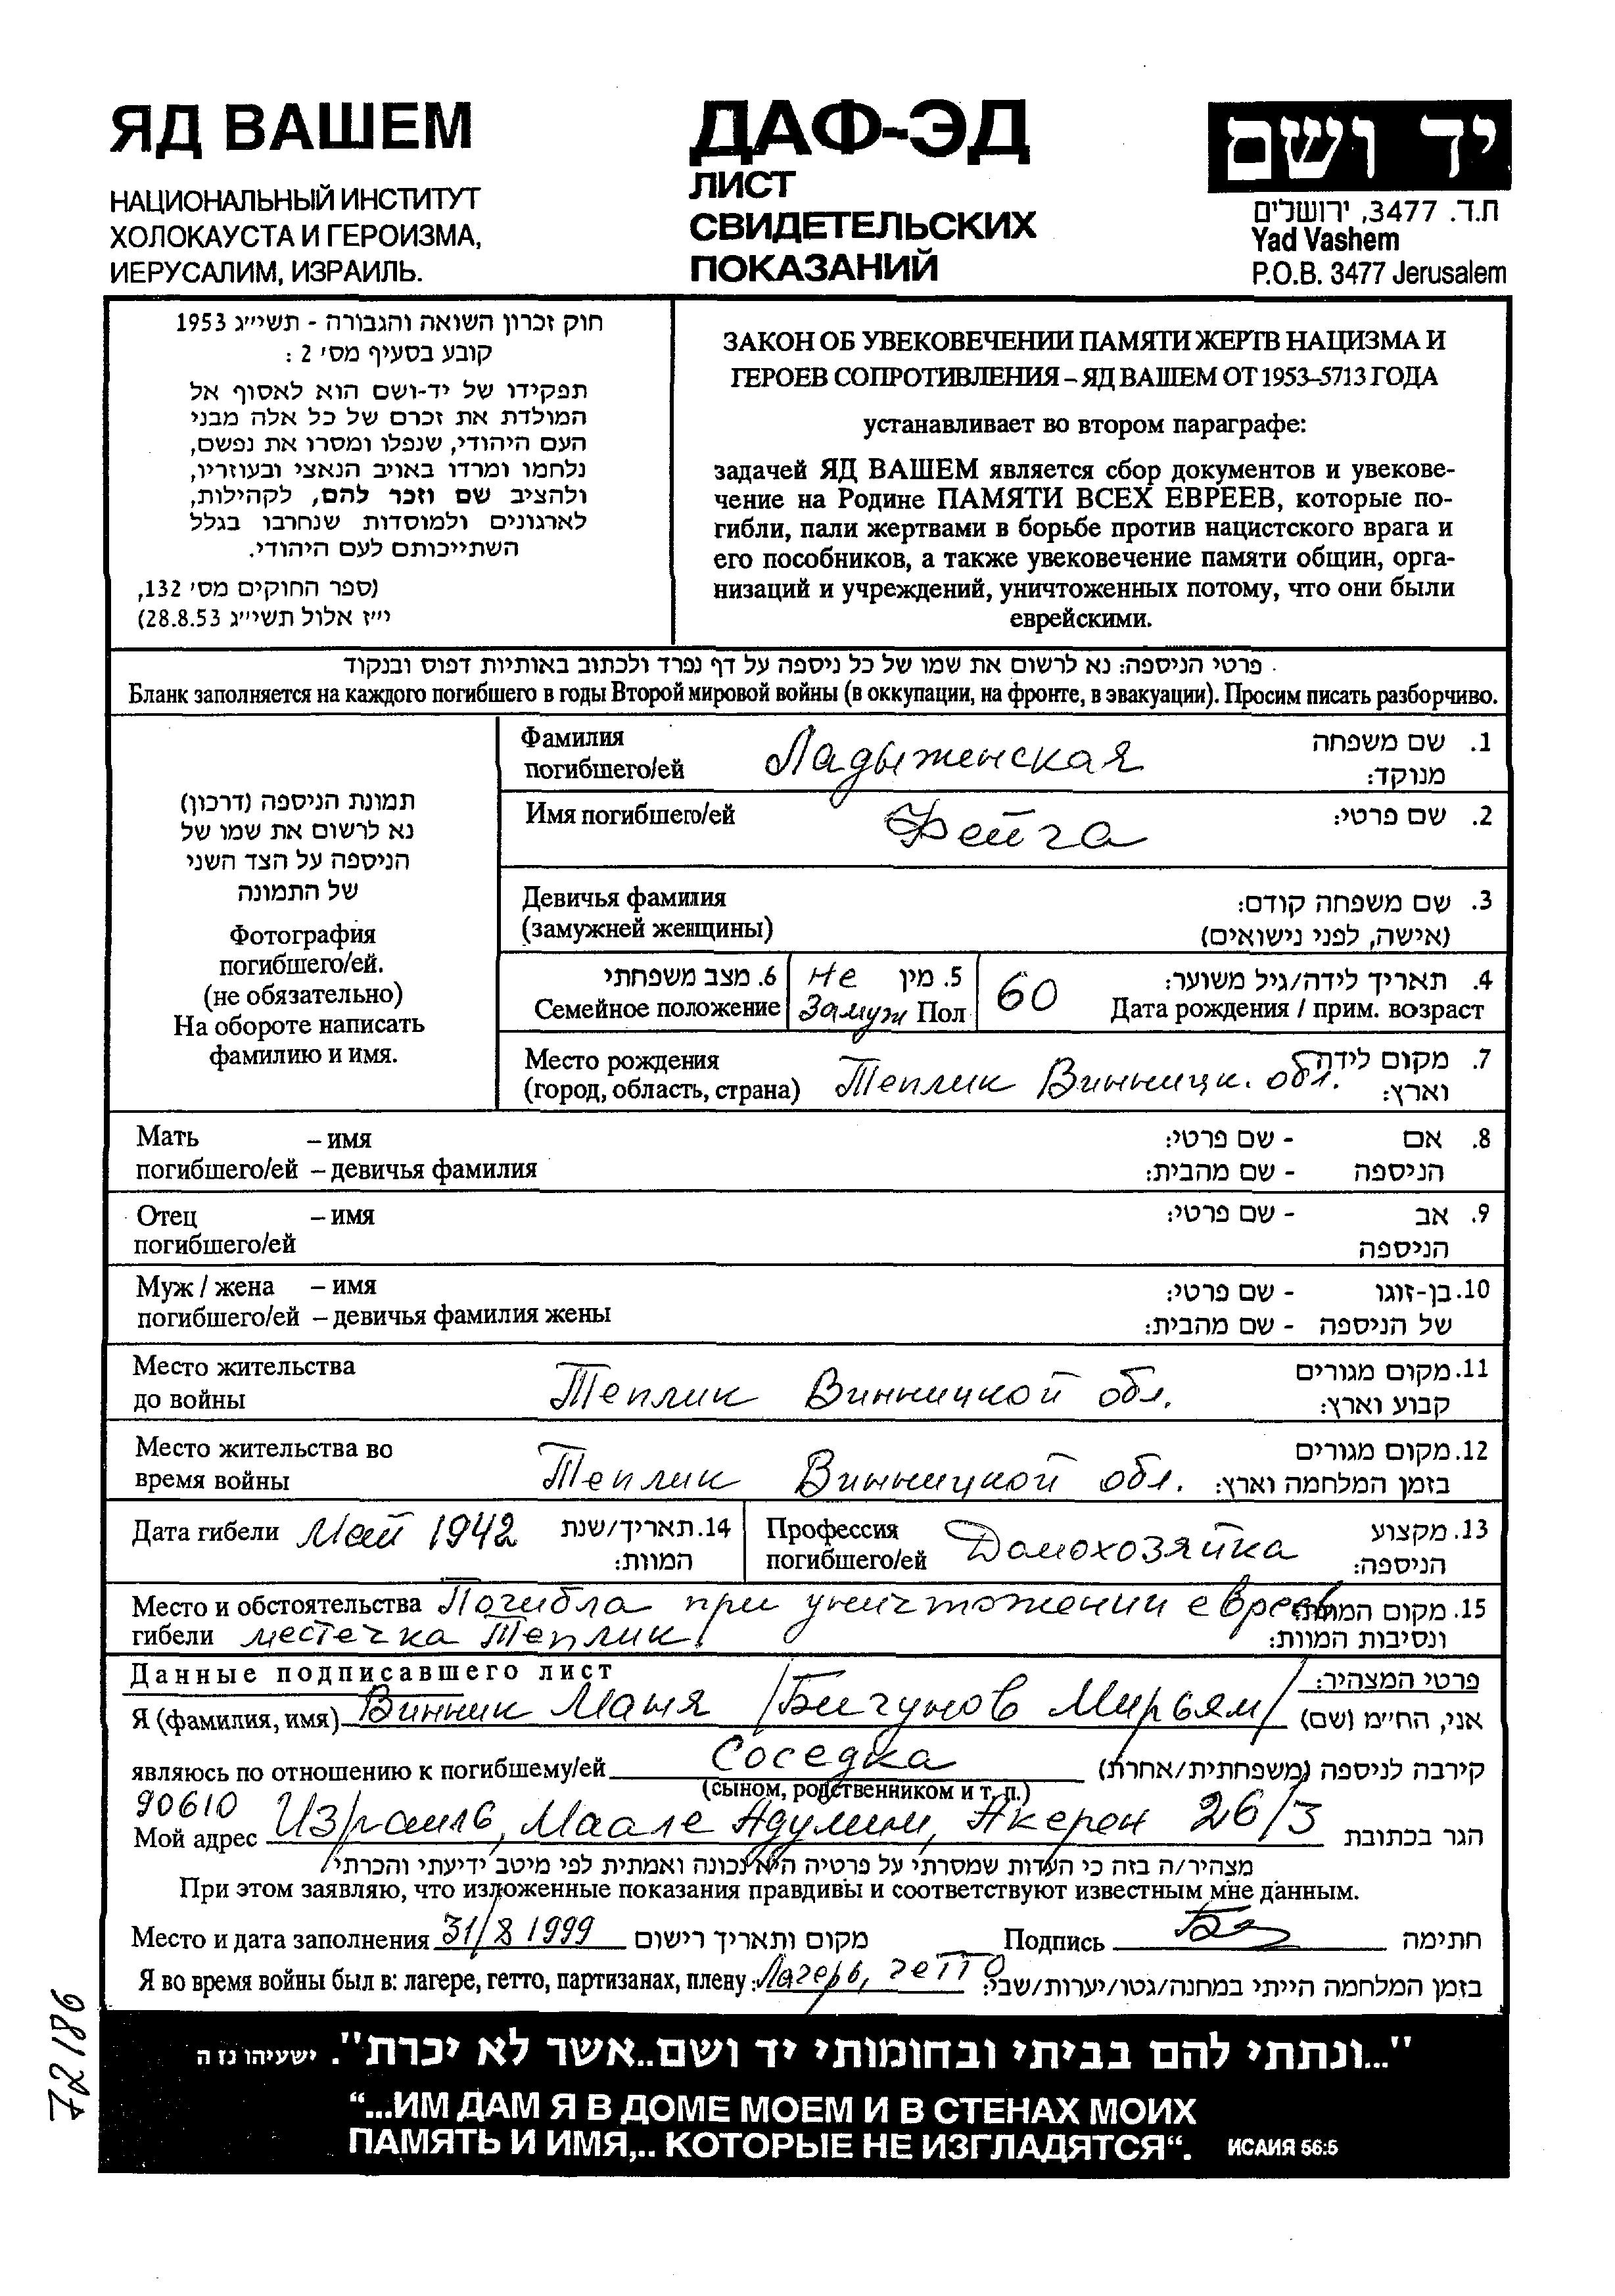 ЯД ВАШЕМ
НАЦИОНАЛЬНЫЙ ИНСТИТУТ
ХОЛОКАУСТА И ГЕРОИЗМА,
ИЕРУСАЛИМ, ИЗРАИЛЬ.
ДАФ-ЭД
ЛИСТ
СВИДЕТЕЛЬСКИХ
ПОКАЗАНИЙ
יד ושם
ת.ד. 3477, ירושלים
Yad Vashem
P.O.B. 3477 Jerusalem
חוק זכרון השואה והגבורה - תשי״ג 1953
קובע בסעיף מס׳ 2 :
תפקידו של יד-ושם הוא לאסוף אל
המולדת את זכרם של כל אלה מבני
העם היהודי, שנפלו ומסרו את נפשם,
נלחמו ומרדו באויב הנאצי ובעוזריו,
ולהציב שם וזכר להם, לקהילות,
לארגונים ולמוסדות שנחרבו בגלל
השתייכותם לעם היהודי.
(ספר החוקים מס׳ 132,
י״ז אלול תשי״ג 28.8.53)
ЗАКОН ОБ УВЕКОВЕЧЕНИИ ПАМЯТИ ЖЕРТВ НАЦИЗМА И
ГЕРОЕВ СОПРОТИВЛЕНИЯ – ЯД ВАШЕМ ОТ 1953–5713 ГОДА
устанавливает во втором параграфе:
задачей ЯД ВАШЕМ является сбор документов и увекове-
чение на Родине ПАМЯТИ ВСЕХ ЕВРЕЕВ, которые по-
гибли, пали жертвами в борьбе против нацистского врага и
его пособников, а также увековечение памяти общин, орга-
низаций и учреждений, уничтоженных потому, что они были
еврейскими.
פרטי הניספה: נא לרשום את שמו של כל ניספה על דף נפרד ולכתוב באותיות דפוס ובנקוד
Бланк заполняется на каждого погибшего в годы Второй мировой войны (в оккупации, на фронте, в эвакуации). Просим писать разборчиво.
תמונת הניספה (דרכון)
נא לרשום את שמו של
הניספה על הצד השני
של התמונה
Фотография
погибшего/ей.
(не обязательно)
На обороте написать
фамилию и имя.
Фамилия
погибшего/ей Ладыженская
1. שם משפחה
מנוקד:
Имя погибшего/ей Фейга 2. שם פרטי:
Девичья фамилия
(замужней женщины)
3. שם משפחה קודם:
(אישה, לפני נישואים)
6. מצב משפחתי
Семейное положение
Не 5. מין
Замуж Пол
60
4. תאריך לידה/גיל משוער:
Дата рождения / прим. возраст
Место рождения
(город, область, страна) Теплик Винницк. обл.
7. מקום לידה
וארץ:
Мать – имя
погибшего/ей – девичья фамилия
8. אם - שם פרטי:
הניספה - שם מהבית:
Отец – имя
погибшего/ей
9. אב - שם פרטי:
הניספה
Муж / жена – имя
погибшего/ей – девичья фамилия жены
10. בן-זוגו - שם פרטי:
של הניספה - שם מהבית:
Место жительства
до войны Теплик Винницкой обл.
11. מקום מגורים
קבוע וארץ:
Место жительства во
время войны Теплик Винницкой обл.
12. מקום מגורים
בזמן המלחמה וארץ:
Дата гибели Май 1942
14. תאריך/שנת
המוות:
Профессия
погибшего/ей Домохозяйка
13. מקצוע
הניספה:
Место и обстоятельства Погибла при уничтожении евреев
гибели местечка Теплик
15. מקום המוות
ונסיבות המוות:
Данные подписавшего лист פרטי המצהיר:
Я (фамилия, имя) Винник Маня /Бигунов Мирьям/ אני, הח״מ (שם)
являюсь по отношению к погибшему/ей Соседка קירבה לניספה (משפחתית/אחרת)
(сыном, родственником и т. п.)
90610
Мой адрес Израиль, Маале Адумим, Акерен 26/3 הגר בכתובת
מצהיר/ה בזה כי העדות שמסרתי על פרטיה היא נכונה ואמתית לפי מיטב ידיעתי והכרתי
При этом заявляю, что изложенные показания правдивы и соответствуют известным мне данным.
Место и дата заполнения 31/8 1999 מקום ותאריך רישום Подпись חתימה
Я во время войны был в: лагере, гетто, партизанах, плену: Лагерь, гетто בזמן המלחמה הייתי במחנה/גטו/יערות/שבי:
72186
"...ונתתי להם בביתי ובחומותי יד ושם..אשר לא יכרת". ישעיהו נז ה
“...ИМ ДАМ Я В ДОМЕ МОЕМ И В СТЕНАХ МОИХ
ПАМЯТЬ И ИМЯ,.. КОТОРЫЕ НЕ ИЗГЛАДЯТСЯ“. ИСАИЯ 56:5